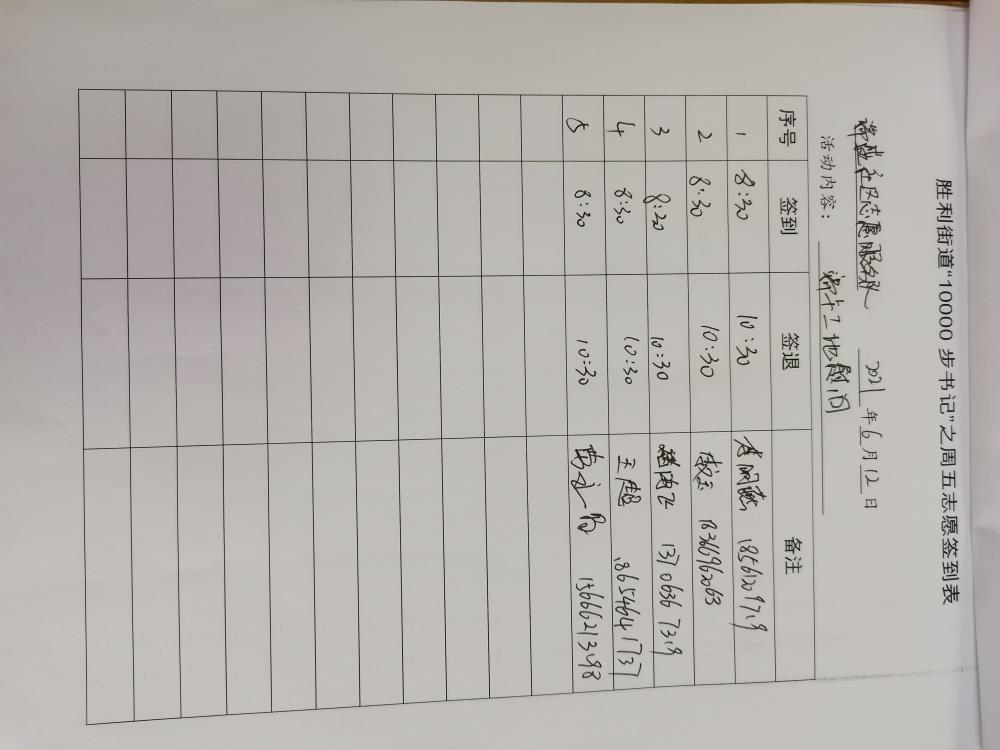 胜利街道“10000步书记”之周五志愿签到表
社区志愿服务队 2021年6月12日
活动内容：
序号 签到 签退 备注
1 8:30 10:30 18561209719
2 8:30 10:30 18366962063
3 8:20 10:30 13706367319
4 8:30 10:30 王超 18654641737
5 8:30 10:30 15666213198